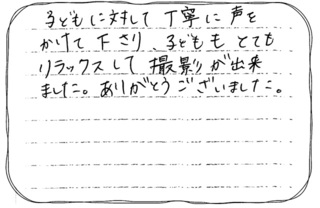 子どもに対して丁寧に声を
かけて下さり、子どももとても
リラックスして撮影が出来
ました。ありがとうございました。